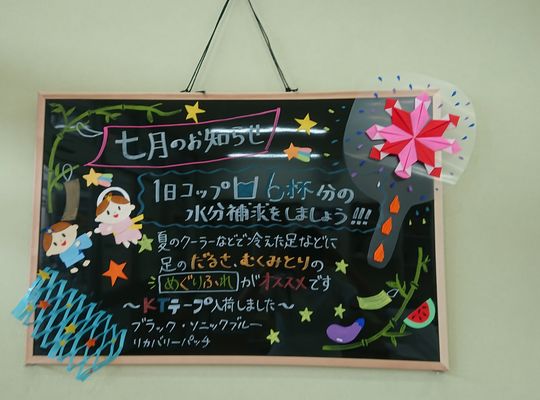 七月のお知らせ
1日コップ6杯分の
水分補求をしましょう!!!
夏のクーラーなどで冷えた足などに
足のだるさ、むくみとりの
めぐりふれがオススメです
〜KTテープ入荷しました〜
ブラック・ソニックブルー
リカバリーパッチ